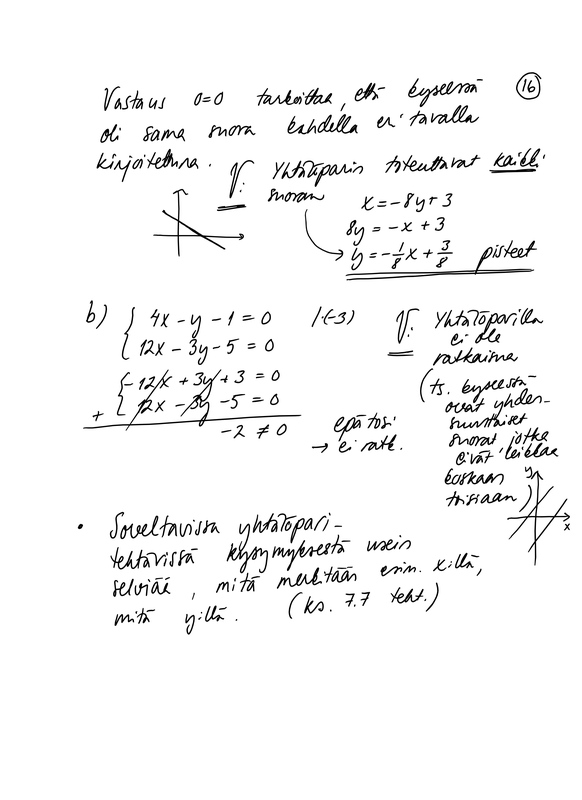 16
Vastaus 0=0 tarkoittaa, että kyseessä
oli sama suora kahdella eri tavalla
kirjoitettuna.
V: Yhtälöparin toteuttavat kaikki
suoran
x = -8y + 3
8y = -x + 3
y = -1/8 x + 3/8 pisteet
b) { 4x - y - 1 = 0 | ·(-3)
12x - 3y - 5 = 0
{ -12x + 3y + 3 = 0
+ 12x - 3y - 5 = 0
-2 ≠ 0
epätosi
→ ei ratk.
V: Yhtälöparilla
ei ole
ratkaisua
(ts. kyseessä
ovat yhden-
suuntaiset
suorat jotka
eivät leikkaa
koskaan
toisiaan)
y
x
• Soveltavissa yhtälöpari-
tehtävissä kysymyksestä usein
selviää, mitä merkitään esim. x:llä,
mitä y:llä. (ks. 7.7 teht.)